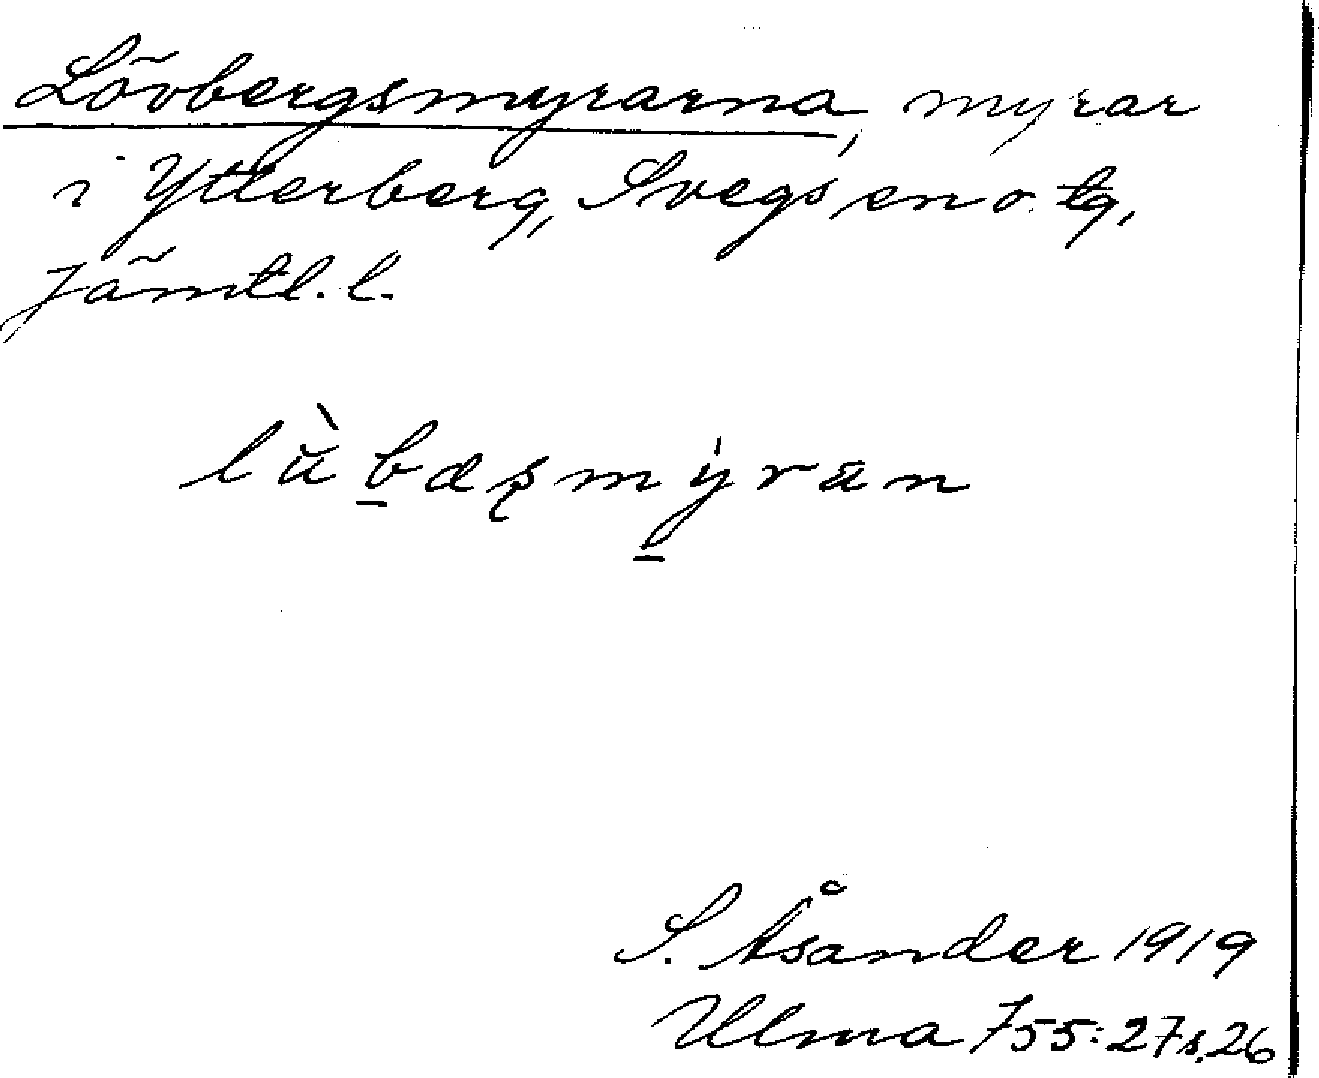 Lövbergsmyrarna, myrar
i Ytterberg, Svegs sn o. tg,
Jämtl. l.
lὰb̲æʂmýrän
S. Åsander 1919
Ulma 755:27 s. 26